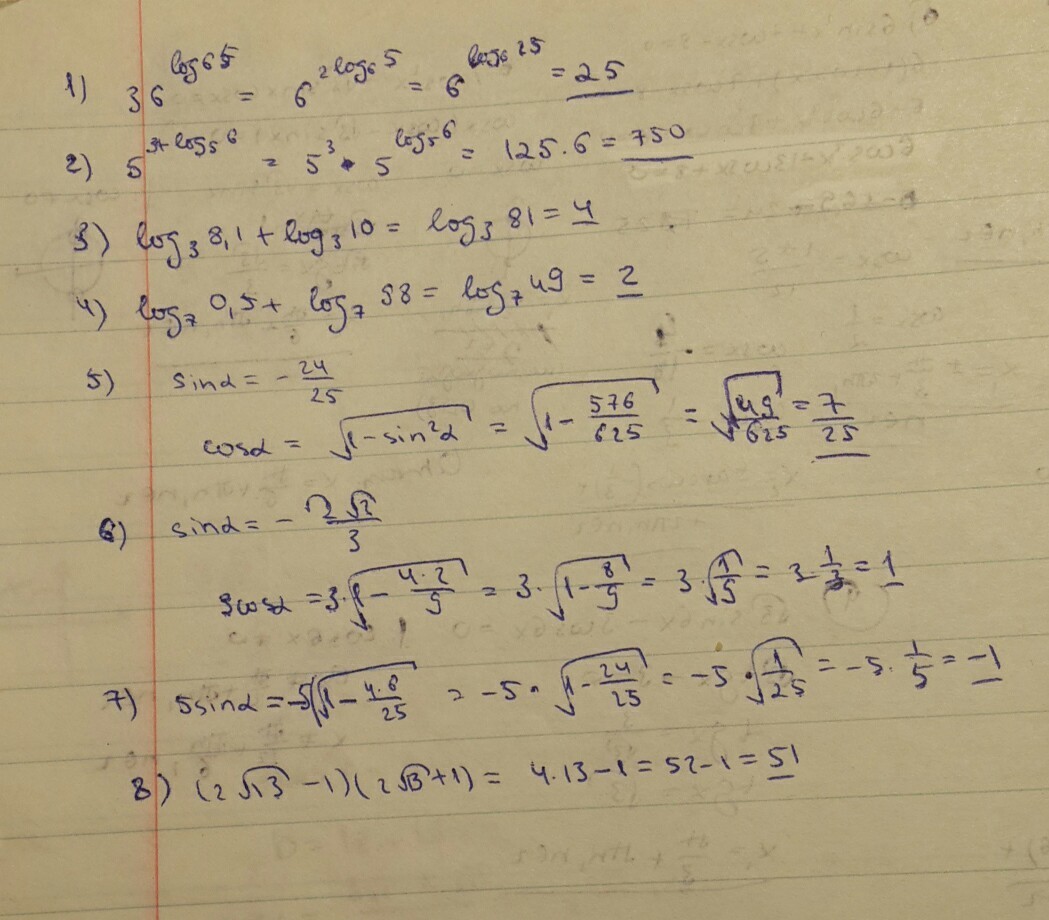 1) 36^{log₆5} = 6^{2log₆5} = 6^{log₆25} = 25
2) 5^{3+log₅6} = 5³ · 5^{log₅6} = 125.6 = 750
3) log₃ 8,1 + log₃ 10 = log₃ 81 = 4
4) log₇ 0,5 + log₇ 98 = log₇ 49 = 2
5) sinα = - 24/25
cosα = √(1-sin²α) = √(1 - 576/625) = √(49/625) = 7/25
6) sinα = - 2√2/3
3cosα = 3·√(1 - 4·2/9) = 3·√(1 - 8/9) = 3·√(1/9) = 3·1/3 = 1
7) 5sinα = -5√(1 - 4·6/25) = -5·√(1 - 24/25) = -5·√(1/25) = -5·1/5 = -1
8) (2√13 -1)(2√13 +1) = 4.13-1 = 52-1 = 51